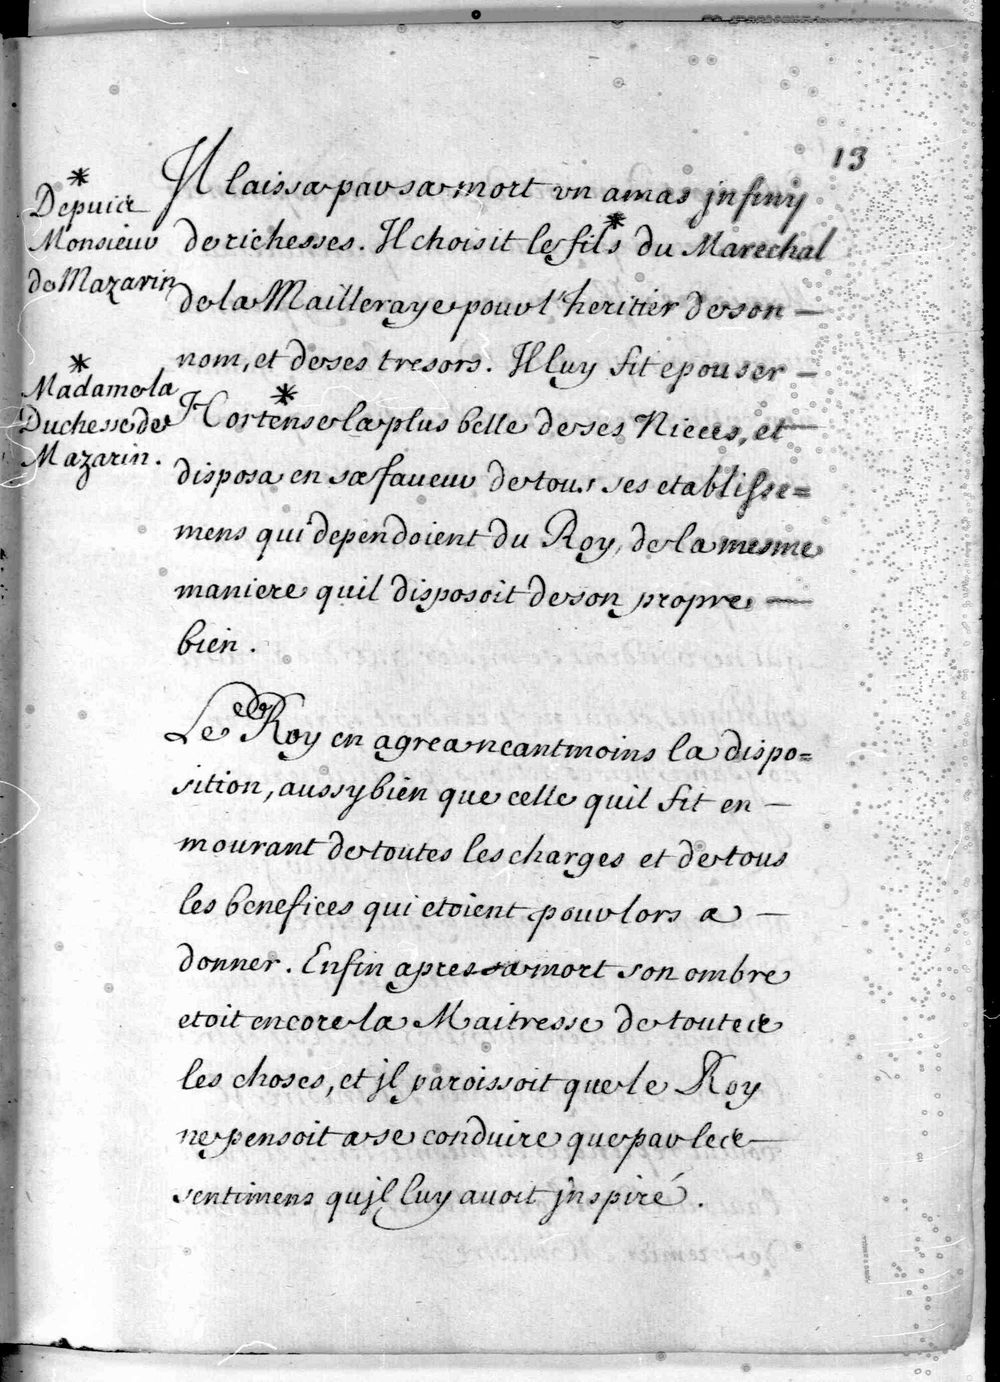 13
Il laissa par sa mort vn amas jnfiny
de richesses. Il choisit le fils * du Marechal
de la Mailleraye pour l'heritier de son —
nom, et de ses tresors. Il luy fit epouser —
Hortense * la plus belle de ses Nieces, et —
disposa en sa faveur de tous ses etablisse=
mens qui dependoient du Roy, de la mesme
maniere quil disposoit de son propre —
bien.
Le Roy en agrea neantmoins la dispo=
sition, aussy bien que celle quil fit en —
mourant de toutes les charges et de tous
les benefices qui etoient pour lors a —
donner. Enfin apres sa mort son ombre
etoit encore la Maitresse de toutes
les choses, et jl paroissoit que le Roy
ne pensoit a se conduire que par les —
sentimens qujl luy avoit jnspiré.
*
Depuis
Monsieur
de Mazarin
*
Madame la
Duchesse de
Mazarin.